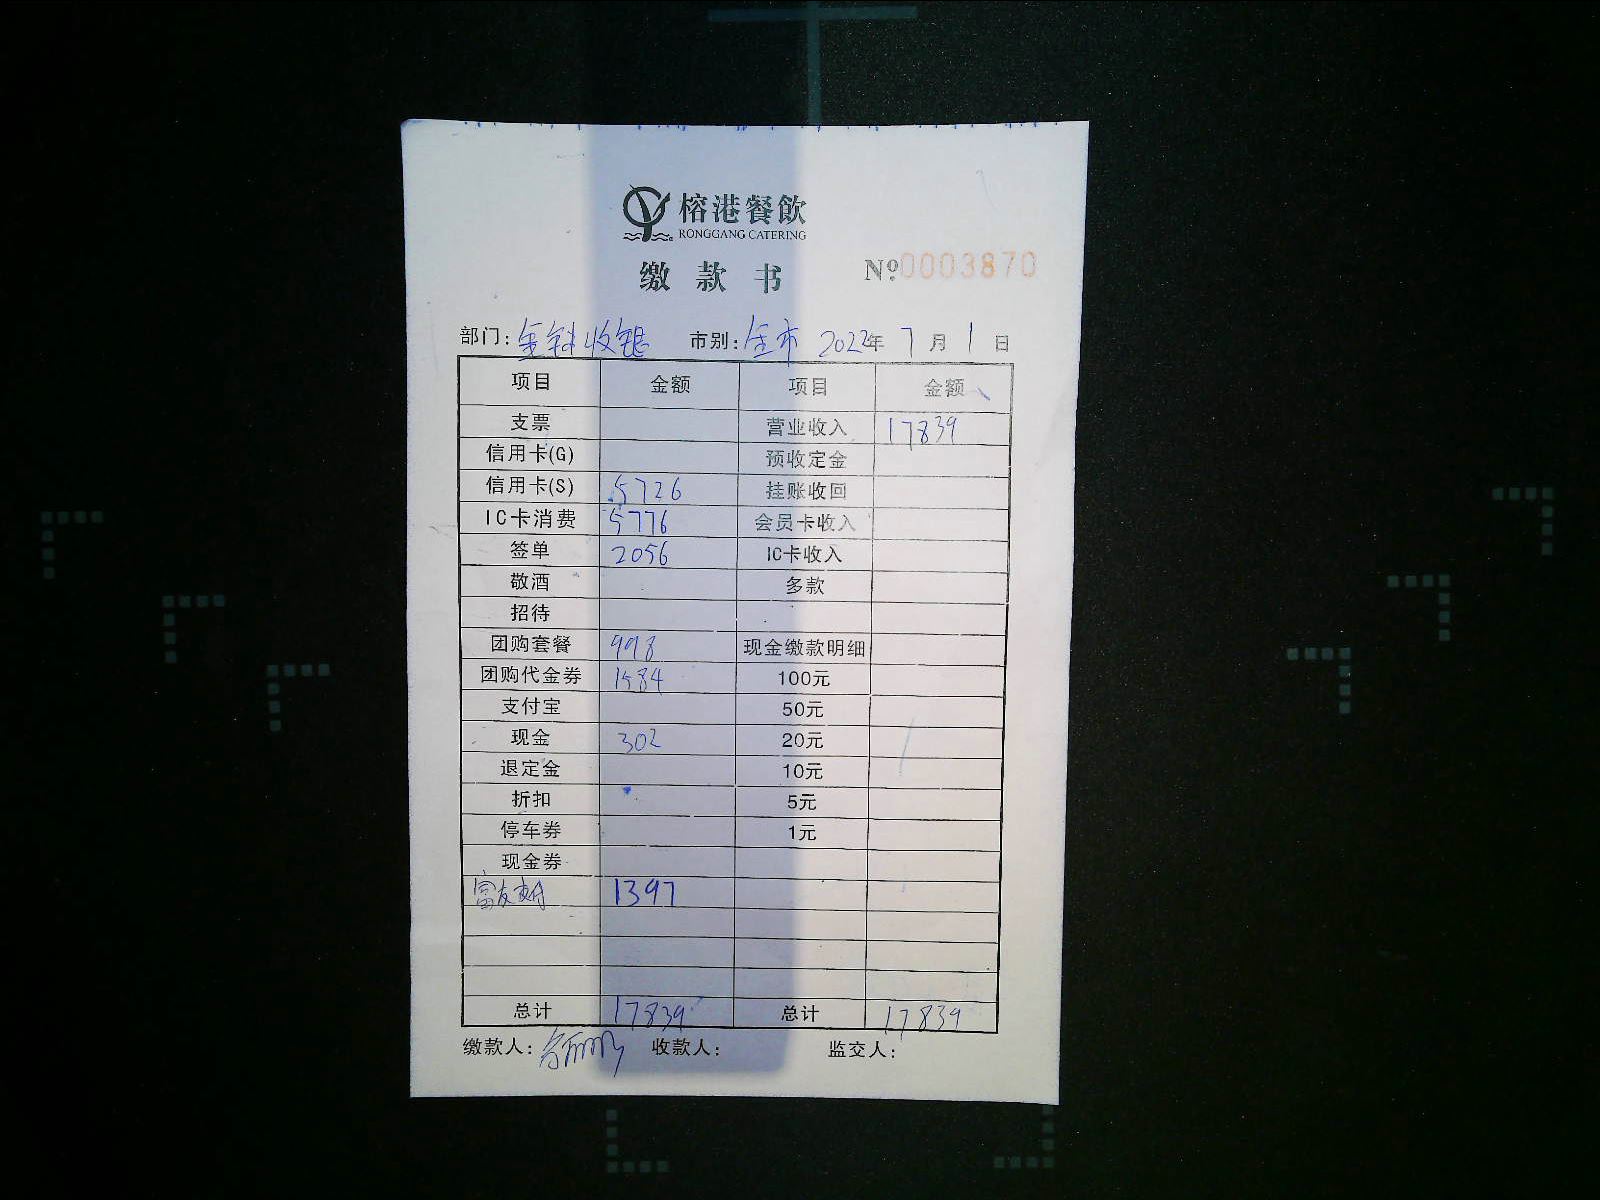 榕港餐飲
RONGGANG CATERING
缴款书 Nº0003870
部门: 收银 市别: 全市 2022年 7月 1日
项目 金额 项目 金额
支票 营业收入 17839
信用卡(G) 预收定金
信用卡(S) 5726 挂账收回
IC卡消费 5776 会员卡收入
签单 2056 IC卡收入
敬酒 多款
招待
团购套餐 998 现金缴款明细
团购代金券 1584 100元
支付宝 50元
现金 302 20元
退定金 10元
折扣 5元
停车券 1元
现金券
富友支付 1397
总计 17839 总计 17839
缴款人: 收款人: 监交人: